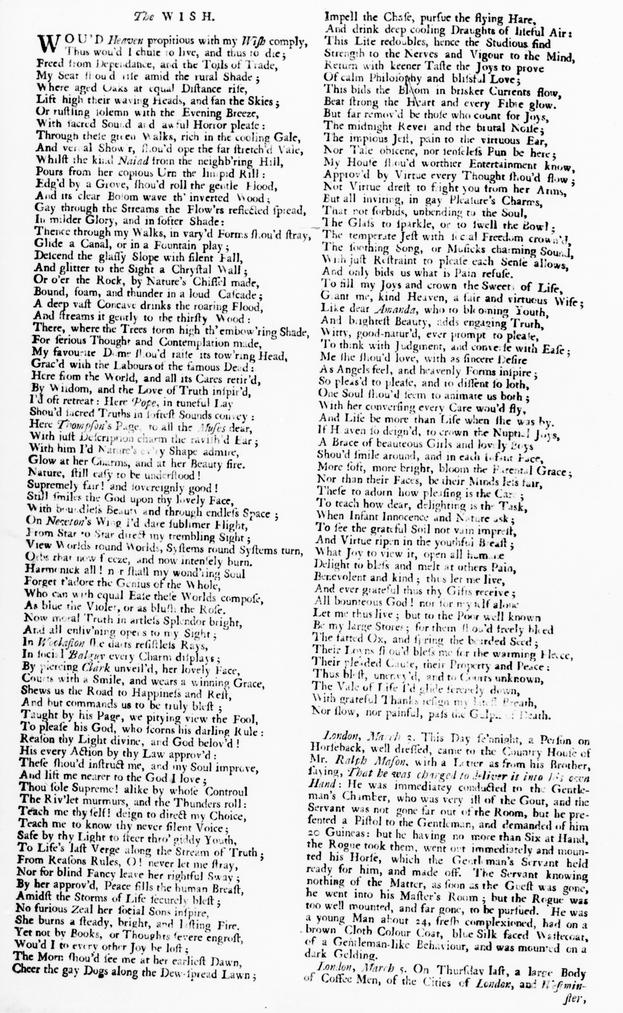 The WISH.
WOU'D Heaven propitious with my Wish comply,
Thus wou'd I chuse to live, and thus to die;
Freed from Dependance, and the Toils of Trade,
My Seat shou'd rise amid the rural Shade;
Where aged Oaks at equal Distance rise,
Lift high their waving Heads, and fan the Skies;
Or rustling solemn with the Evening Breeze,
With sacred Sound and awful Horror please:
Through these green Walks, rich in the cooling Gale,
And vernal Show'r, shou'd ope the far stretch'd Vale,
Whilst the kind Naiad from the neighb'ring Hill,
Pours from her copious Urn the limpid Rill:
Edg'd by a Grove, shou'd roll the gentle Flood,
And its clear Bosom wave th' inverted Wood;
Gay through the Streams the Flow'rs reflected spread,
In milder Glory, and in softer Shade:
Thence through my Walks, in vary'd Forms shou'd stray,
Glide a Canal, or in a Fountain play;
Descend the glassy Slope with silent Fall,
And glitter to the Sight a Chrystal Wall;
Or o'er the Rock, by Nature's Chissel made,
Bound, foam, and thunder in a loud Cascade;
A deep vast Concave drinks the roaring Flood,
And streams it gently to the thirsty Wood:
There, where the Trees form high th' embow'ring Shade,
For serious Thought and Contemplation made,
My favourite Dome shou'd raise its tow'ring Head,
Grac'd with the Labours of the famous Dead:
Here from the World, and all its Cares retir'd,
By Wisdom, and the Love of Truth inspir'd,
I'd oft retreat: Here Pope, in tuneful Lay
Shou'd sacred Truths in softest Sounds convey:
Here Thompson's Page, to all the Muses dear,
With just Description charm the ravish'd Ear;
With him I'd Nature's every Shape admire,
Glow at her Charms, and at her Beauty fire.
Nature, still easy to be understood!
Supremely fair! and sovereignly good!
Still smiles the God upon thy lovely Face,
With boundless Beauty and through endless Space;
On Newton's Wing I'd dare sublimer Flight,
From Star to Star direct my trembling Sight;
View Worlds round Worlds, Systems round Systems turn,
Orbs that now freeze, and now intensely burn.
Harmonick all! nor shall my wond'ring Soul
Forget t'adore the Genius of the Whole,
Who can with equal Ease these Worlds compose,
As blue the Violet, or as blush the Rose.
Now moral Truth in artless Splendor bright,
And all enliv'ning opens to my Sight;
In Woolaston she darts resistless Rays,
In social Balguy every Charm displays;
By piercing Clark unveil'd, her lovely Face,
Courts with a Smile, and wears a winning Grace,
Shews us the Road to Happiness and Rest,
And but commands us to be truly blest;
Taught by his Page, we pitying view the Fool,
To please his God, who scorns his darling Rule:
Reason thy Light divine, and God belov'd!
His every Action by thy Law approv'd:
These shou'd instruct me, and my Soul improve,
And lift me nearer to the God I love;
Thou sole Supreme! alike by whose Controul
The Riv'let murmurs, and the Thunders roll:
Teach me thyself! deign to direct my Choice,
Teach me to know thy never silent Voice;
Safe by thy Light to steer thro' giddy Youth,
To Life's last Verge along the Stream of Truth;
From Reasons Rules, O! never let me stray,
Nor for blind Fancy leave her rightful Sway;
By her approv'd, Peace fills the human Breast,
Amidst the Storms of Life securely blest;
No furious Zeal her social Sons inspire,
She burns a steady, bright, and lasting Fire.
Yet not by Books, or Thoughts severe engrost,
Wou'd I to every other Joy be lost;
The Morn shou'd see me at her earliest Dawn,
Cheer the gay Dogs along the Dew-spread Lawn;
Impell the Chase, pursue the flying Hare,
And drink deep cooling Draughts of lifeful Air:
This Life redoubles, hence the Studious find
Strength to the Nerves and Vigour to the Mind,
Return with keener Taste the Joys to prove
Of calm Philosophy and blissful Love;
This bids the Bloom in brisker Currents flow,
Beat strong the Heart and every Fibre glow.
But far remov'd be those who count for Joys,
The midnight Revel and the brutal Noise;
The impious Jest, pain to the virtuous Ear,
Nor Tale obscene, nor senseless Pun be here;
My House shou'd worthier Entertainment know,
Approv'd by Virtue every Thought shou'd flow;
Not Virtue drest to fright you from her Arms,
But all inviting, in gay Pleasure's Charms,
That not forbids, unbending to the Soul,
The Glass to sparkle, or to swell the Bowl;
The temperate Jest with social Freedom crown'd,
The soothing Song, or Musicks charming Sound,
With just Restraint to please each Sense allows,
And only bids us what is Pain refuse.
To fill my Joys and crown the Sweets of Life,
Grant me, kind Heaven, a fair and virtuous Wife;
Like dear Amanda, who to blooming Youth,
And brightest Beauty, adds engaging Truth,
Witty, good-natur'd, ever prompt to please,
To think with Judgment, and converse with Ease;
Me she shou'd love, with as sincere Desire
As Angels feel, and heavenly Forms inspire;
So pleas'd to please, and to dissent so loth,
One Soul shou'd seem to animate us both;
With her conversing every Care wou'd fly,
And Life be more than Life when she was by.
If Heaven so deign'd, to crown the Nuptial Joys,
A Brace of beauteous Girls and lovely Boys
Shou'd smile around, and in each infant Face,
More soft, more bright, bloom the Parental Grace;
Nor than their Faces, be their Minds less fair,
These to adorn how pleasing is the Care;
To teach how dear, delighting is the Task,
When Infant Innocence and Nature ask;
To see the grateful Soil not vain imprest,
And Virtue ripen in the youthful Breast;
What Joy to view it, open all humane
Delight to bless and melt at others Pain,
Benevolent and kind; thus let me live,
And ever grateful thus thy Gifts receive;
All bounteous God! nor for myself alone
Let me thus live; but to the Poor well known
Be my large Stores; for them shou'd freely bleed
The fatted Ox, and spring the bearded Seed;
Their Loyns shou'd bless me for the warming Fleece,
Their pleaded Cause, their Property and Peace:
Thus blest, unenvy'd, and to Courts unknown,
The Vale of Life I'd glide serenely down,
With grateful Thanks resign my latest Breath,
Nor slow, nor painful, pass the Gulph of Death.
London, March 2. This Day se'nnight, a Person on
Horseback, well dressed, came to the Country House of
Mr. Ralph Mason, with a Letter as from his Brother,
saying, That he was charged to deliver it into his own
Hand: He was immediately conducted to the Gentle-
man's Chamber, who was very ill of the Gout, and the
Servant was not gone far out of the Room, but he pre-
sented a Pistol to the Gentleman, and demanded of him
20 Guineas: but he having no more than Six at Hand,
the Rogue took them, went out immediately and moun-
ted his Horse, which the Gentleman's Servant held
ready for him, and made off. The Servant knowing
nothing of the Matter, as soon as the Guest was gone,
he went into his Master's Room; but the Rogue was
too well mounted, and far gone, to be pursued. He was
a young Man about 24, fresh complexioned, had on a
brown Cloth Colour Coat, blue Silk faced Wastecoat,
of a Gentleman-like Behaviour, and was mounted on a
dark Gelding.
London, March 5. On Thursday last, a large Body
of Coffee Men, of the Cities of London, and Westmin-
ster,